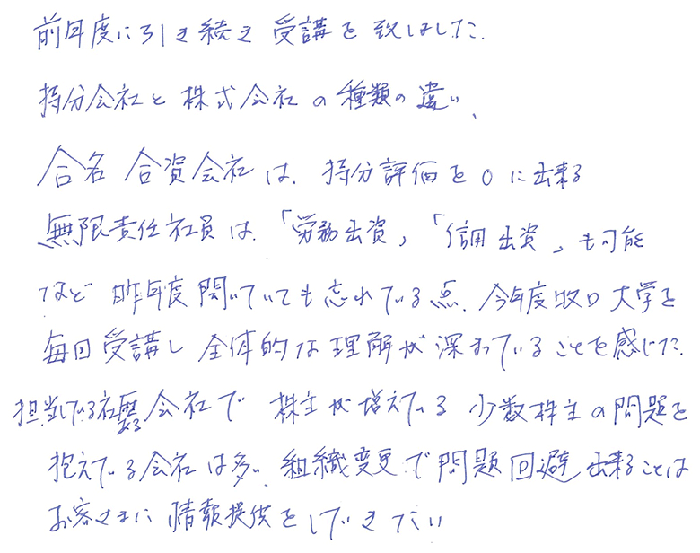 前年度に引き続き受講を致しました.
持分会社と株式会社の種類の違い、
合名 合資会社は、持分評価を0に出来る
無限責任社員は、「労務出資」、「信用出資」も可能
など 昨年度聞いていても忘れている点、今年度牧口大学を
毎回受講し 全体的な理解が深まっていることを感じた.
担当している社歴ある会社で 株主が増えている 少数株主の問題を
抱えている会社は多い. 組織変更で問題回避出来ることは
お客さまに 情報提供をしていきたい